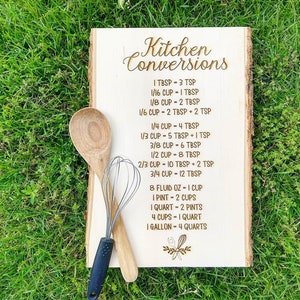 Kitchen
Conversions
1 TBSP = 3 TSP
1/16 CUP = 1 TBSP
1/8 CUP = 2 TBSP
1/6 CUP = 2 TBSP + 2 TSP
1/4 CUP = 4 TBSP
1/3 CUP = 5 TBSP + 1 TSP
3/8 CUP = 6 TBSP
1/2 CUP = 8 TBSP
2/3 CUP = 10 TBSP + 2 TSP
3/4 CUP = 12 TBSP
8 FLUID OZ = 1 CUP
1 PINT = 2 CUPS
1 QUART = 2 PINTS
4 CUPS = 1 QUART
1 GALLON = 4 QUARTS